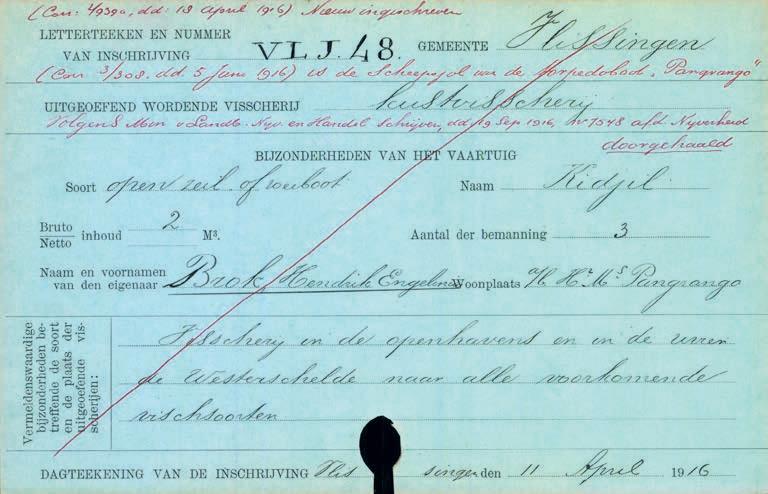 (Corr. 4939a, dd. 18 April 1916) Nieuw ingeschreven
LETTERTEEKEN EN NUMMER
VAN INSCHRIJVING VLJ. 48. GEMEENTE Vlissingen
(Corr 3/308. dd. 5 Juni 1916) is de Scheepsjol van de torpedoboot "Pangrango"
UITGEOEFEND WORDENDE VISSCHERIJ kustvisscherij
Volgens Min v Landb. Nijv. en Handel Schrijven, dd 19 Sep 1916, No 7548 afd. Nijverheid
doorgehaald
BIJZONDERHEDEN VAN HET VAARTUIG
Soort open zeil- of roeiboot Naam Kidjil
Bruto
Netto inhoud 2 M³. Aantal der bemanning 3
Naam en voornamen
van den eigenaar Brok, Hendrik Engelinus Woonplaats a/b Hr Ms Pangrango
Vermeldenswaardige
bijzonderheden be-
treffende de soort
en de plaats der
uitgeoefende vis-
scherijen:
Visscherij in de openhavens en in de
de Westerschelde naar alle voorkomende
vischsoorten
DAGTEEKENING VAN DE INSCHRIJVING Vlissingen den 11 April 1916